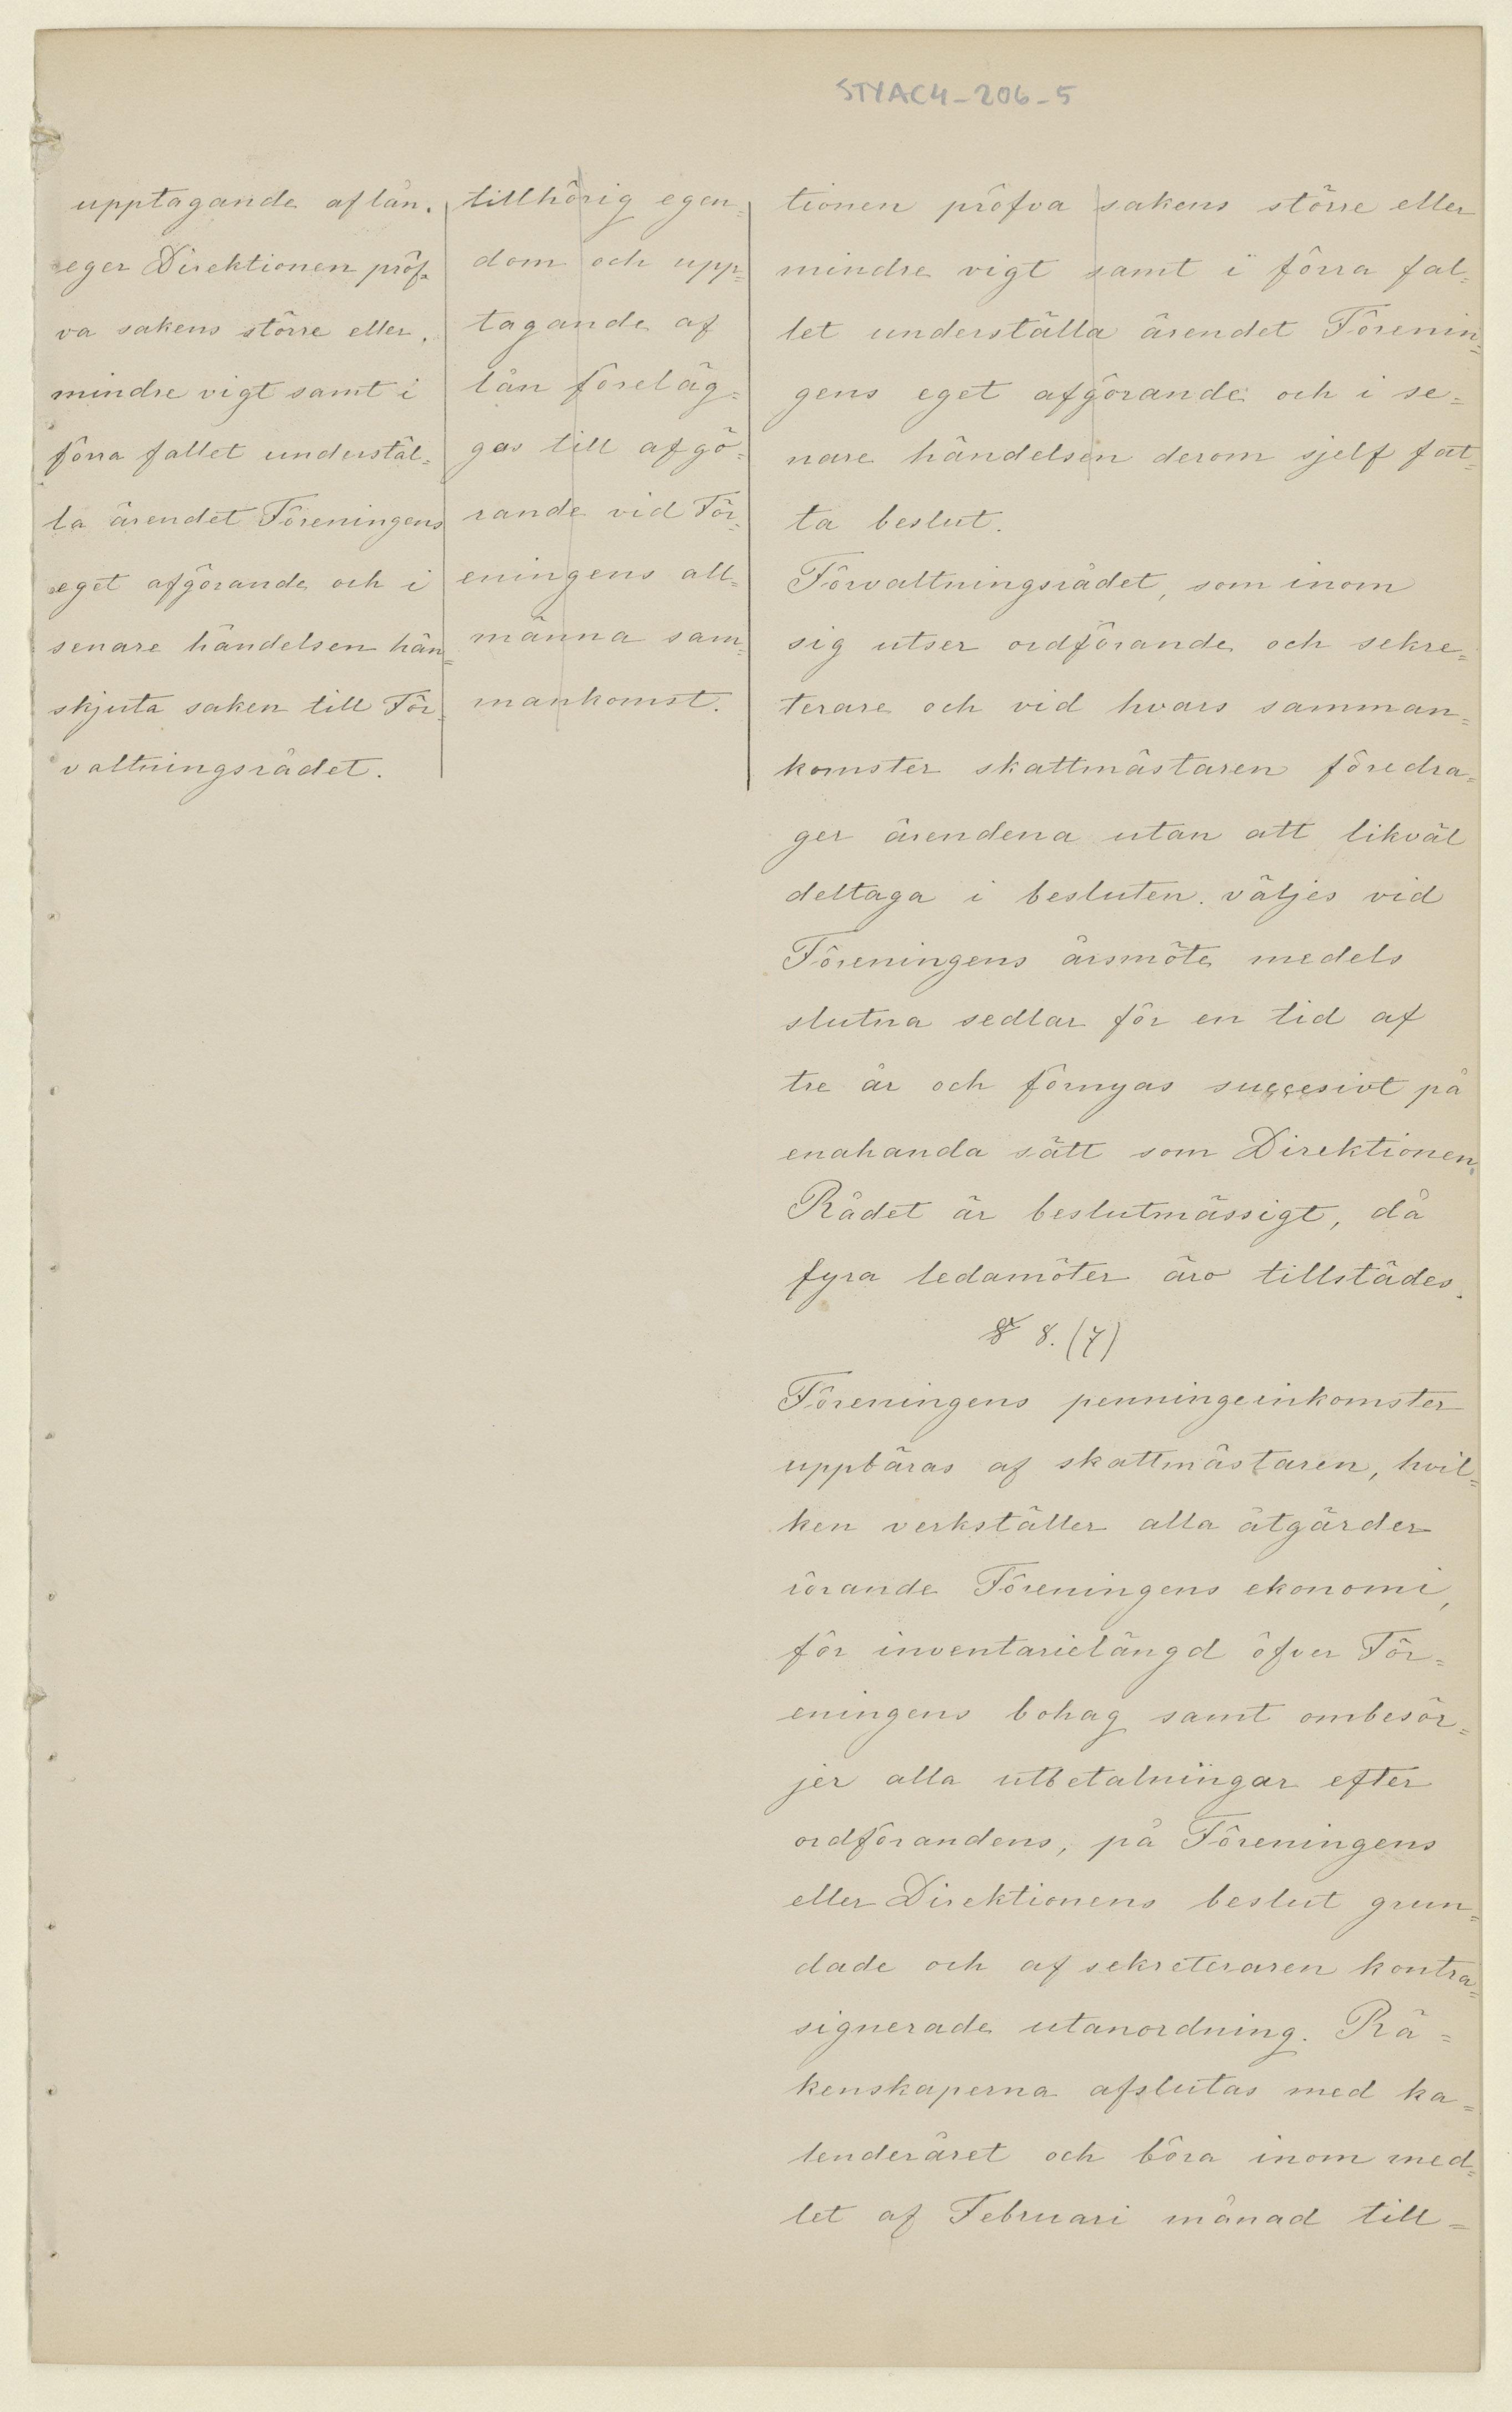 STYAC4-206-5
upptagande af lån.
eger Direktionen pröf-
va sakens större eller
mindre vigt samt i
förra fallet underställ=
la ärendet Föreningens
eget afgörande och i
senare händelsen hän=
skjuta saken till För=
valtningsrådet.
tillhörig egen=
dom och upp=
tagande af
lån föreläg=
gas till afgö=
rande vid För=
eningens all=
männa sam=
mankomst.
tionen pröfva sakens större eller
mindre vigt samt i förra fal=
let underställa ärendet Förenin=
gens eget afgörande och i se=
nare händelsen derom sjelf fat=
ta beslut.
Förvaltningsrådet, som inom
sig utser ordförande och sekre=
terare och vid hvars samman=
komster skattmästaren föredra=
ger ärendena utan att likväl
deltaga i besluten. väljes vid
Föreningens årsmöte medels
slutna sedlar för en tid af
tre år och förnyas succesivt på
enahanda sätt som Direktionen.
Rådet är beslutmässigt, då
fyra ledamöter äro tillstädes.
§ 8. (7)
Föreningens penningeinkomster
uppbäras af skattmästaren, hvil=
ken verkställer alla åtgärder
rörande Föreningens ekonomi,
för inventarielängd öfver För=
eningens bohag samt ombesör=
jer alla utbetalningar efter
ordförandens, på Föreningens
eller Direktionens beslut grun=
dade och af sekreteraren kontra=
signerade utanordning. Rä=
kenskaperna afslutas med ka=
lenderåret och böra inom med=
let af Februari månad till=